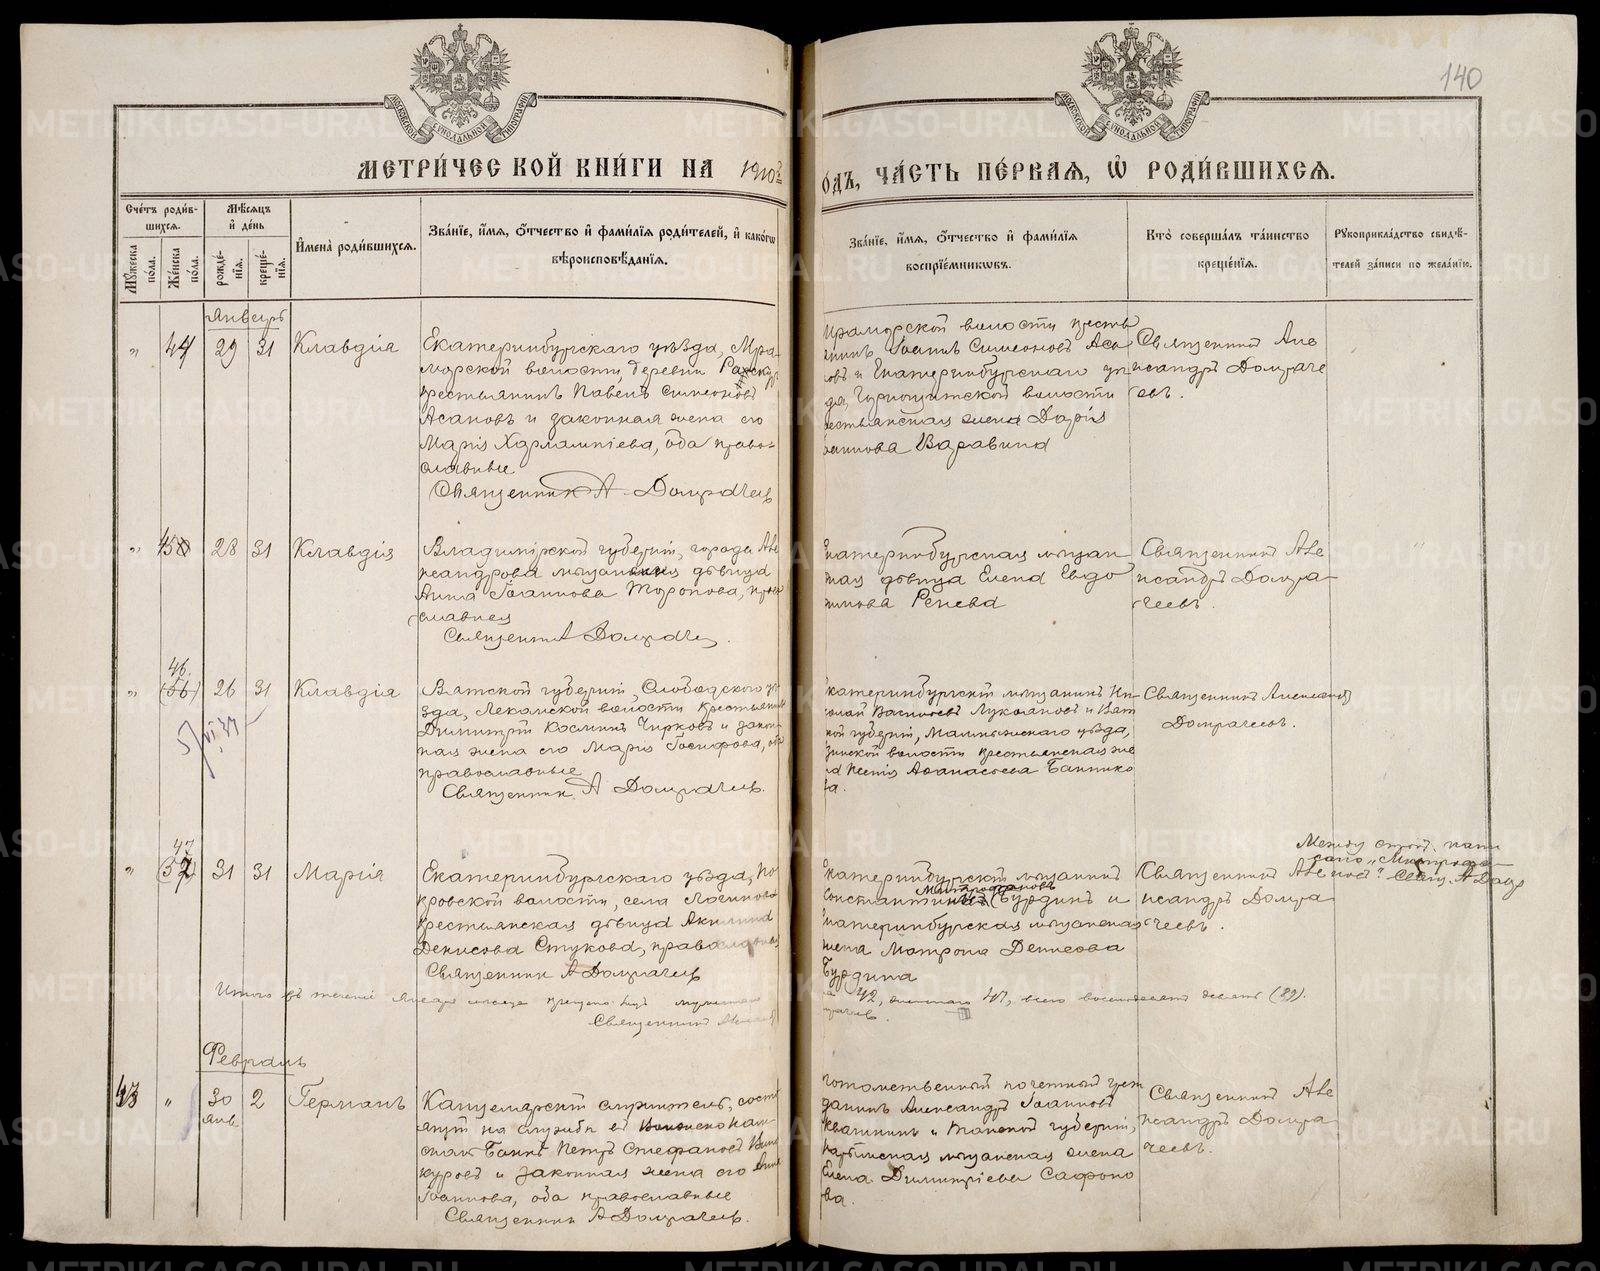 140
МЕТРИ́ЧЕСКОЙ КНИ́ГИ НА 1910й
ОДЪ, ЧА́СТЬ ПЕ́РВАЯ, Ѡ РОДИ́ВШИХСЯ.
Сче́тъ роди́в-
шихся.
Мужеска по́ла.
Же́нска по́ла.
Мѣ́сяцъ
и де́нь
рожде́-
нїя.
креще́-
нїя.
И҆мена̀ роди́вшихся.
Зва́нїе, и҆́мя, ѻ҆́тчество и҆ фами́лїя роди́телей, и҆ како́гѡ
вѣроисповѣ́данїя.
Зва́нїе, и҆́мя, ѻ҆́тчество и҆ фами́лїя
воспрїе́мникѡвъ.
Кто̀ соверша́лъ та́инство
креще́нїя.
Рукоприкла́дство свидѣ́-
телей за́писи по жела́нїю.
Январь
„ 44 29 31 Клавдія
Екатеринбургскаго уѣзда, Мра-
морской волости, деревни
крестьянинъ Павелъ Симеоновъ
Асановъ и законная жена его
Марія Харлампіева, оба право-
славные
Священникъ А. Домрачевъ
Мраморской волости кресть
янинъ Іоаннъ Симеоновъ Аса
овъ и Екатеринбургскаго уѣ
да, волости
рестьянская жена Дарія
Варавина
Священникъ Але
ксандръ Домраче
евъ.
„ 28 31 Клавдія
Владимірской губерніи, города Але
ксандрова мѣщанская дѣвица
Анна Іоаннова Торопова, право
славная
Священникъ А Домрачевъ.
Екатеринбургская мѣщан
ская дѣвица Елена Евдо
кимова Ренева
Священникъ Але
ксандръ Домра
чевъ.
46.
„ (56) 26 31 Клавдія
5/VI 37
Вятской губерніи, Слободского уѣ
зда, Лекомской волости крестьянинъ
Димитрій Косминъ Чирковъ и закон
ная жена его Марія Іосифова, оба
православные
Священникъ А Домрачевъ.
Екатеринбургскій мѣщанинъ Ни
колай Васильевъ Лукоановъ и Вят
ской губерніи, Малмыжскаго уѣзда,
волости крестьянская же
на Ксенія Аѳанасьева Банников
ва.
Священникъ Александръ
Домрачевъ.
47
„ 31 31 Марія
Екатеринбургскаго уѣзда, По
кровской волости, села Логиново
крестьянская дѣвица Акилина
Денисова Стукова, православная
Священникъ А Домрачевъ
Екатеринбургскій мѣщанинъ
Митрофановъ
Константинъ Бурдинъ и
Екатеринбургская мѣщанская
жена Матрона Денисова
Бурдина
Священникъ Але
ксандръ Домра
чевъ.
Между строк. напи
сано „Митрофа-
новъ“. Свящ. А Домр
Итого въ теченіи января мѣсяца крещено лицъ мужеского
42, женскаго 47, всего восемьдесятъ девять (89).
Священникъ Александръ
Домрачевъ.
Февраль
43 „ 30 янв. 2 Германъ
Канцелярскій служитель, состо
ящій на службѣ въ Волжско-Кам-
скомъ Банкѣ Петръ Стефановъ Вино
куровъ и законная жена его Анна
Іоаннова, оба православные
Священникъ А Домрачевъ.
потомственный почетный граж
данинъ Александръ Іоанновъ
Квашнинъ и Томской губерніи,
Нарымская мѣщанская жена
Елена Димитріева Сафоно
ва.
Священникъ Але
ксандръ Домра
чевъ.